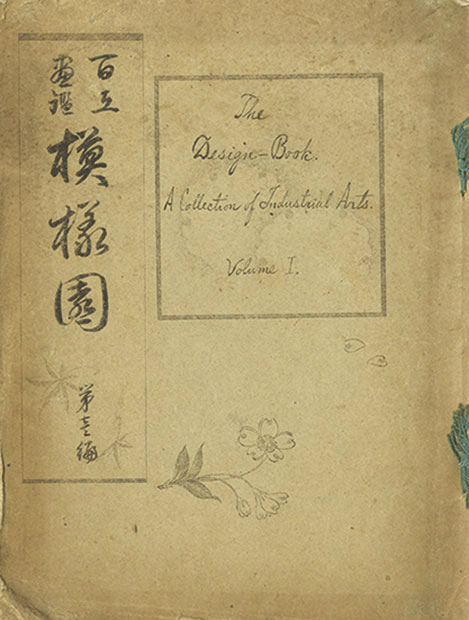 百工
画鑑
模様園
第壱編
The
Design-Book.
A Collection of Industrial Arts.
Volume I.